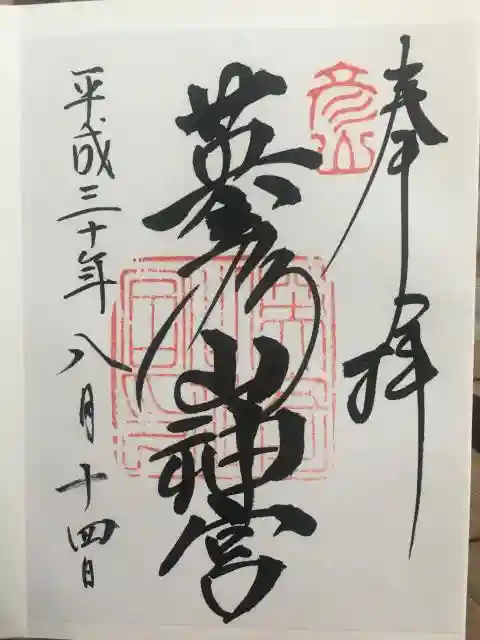 奉拝
彦山
英彦山神宮
平成三十年八月十四日